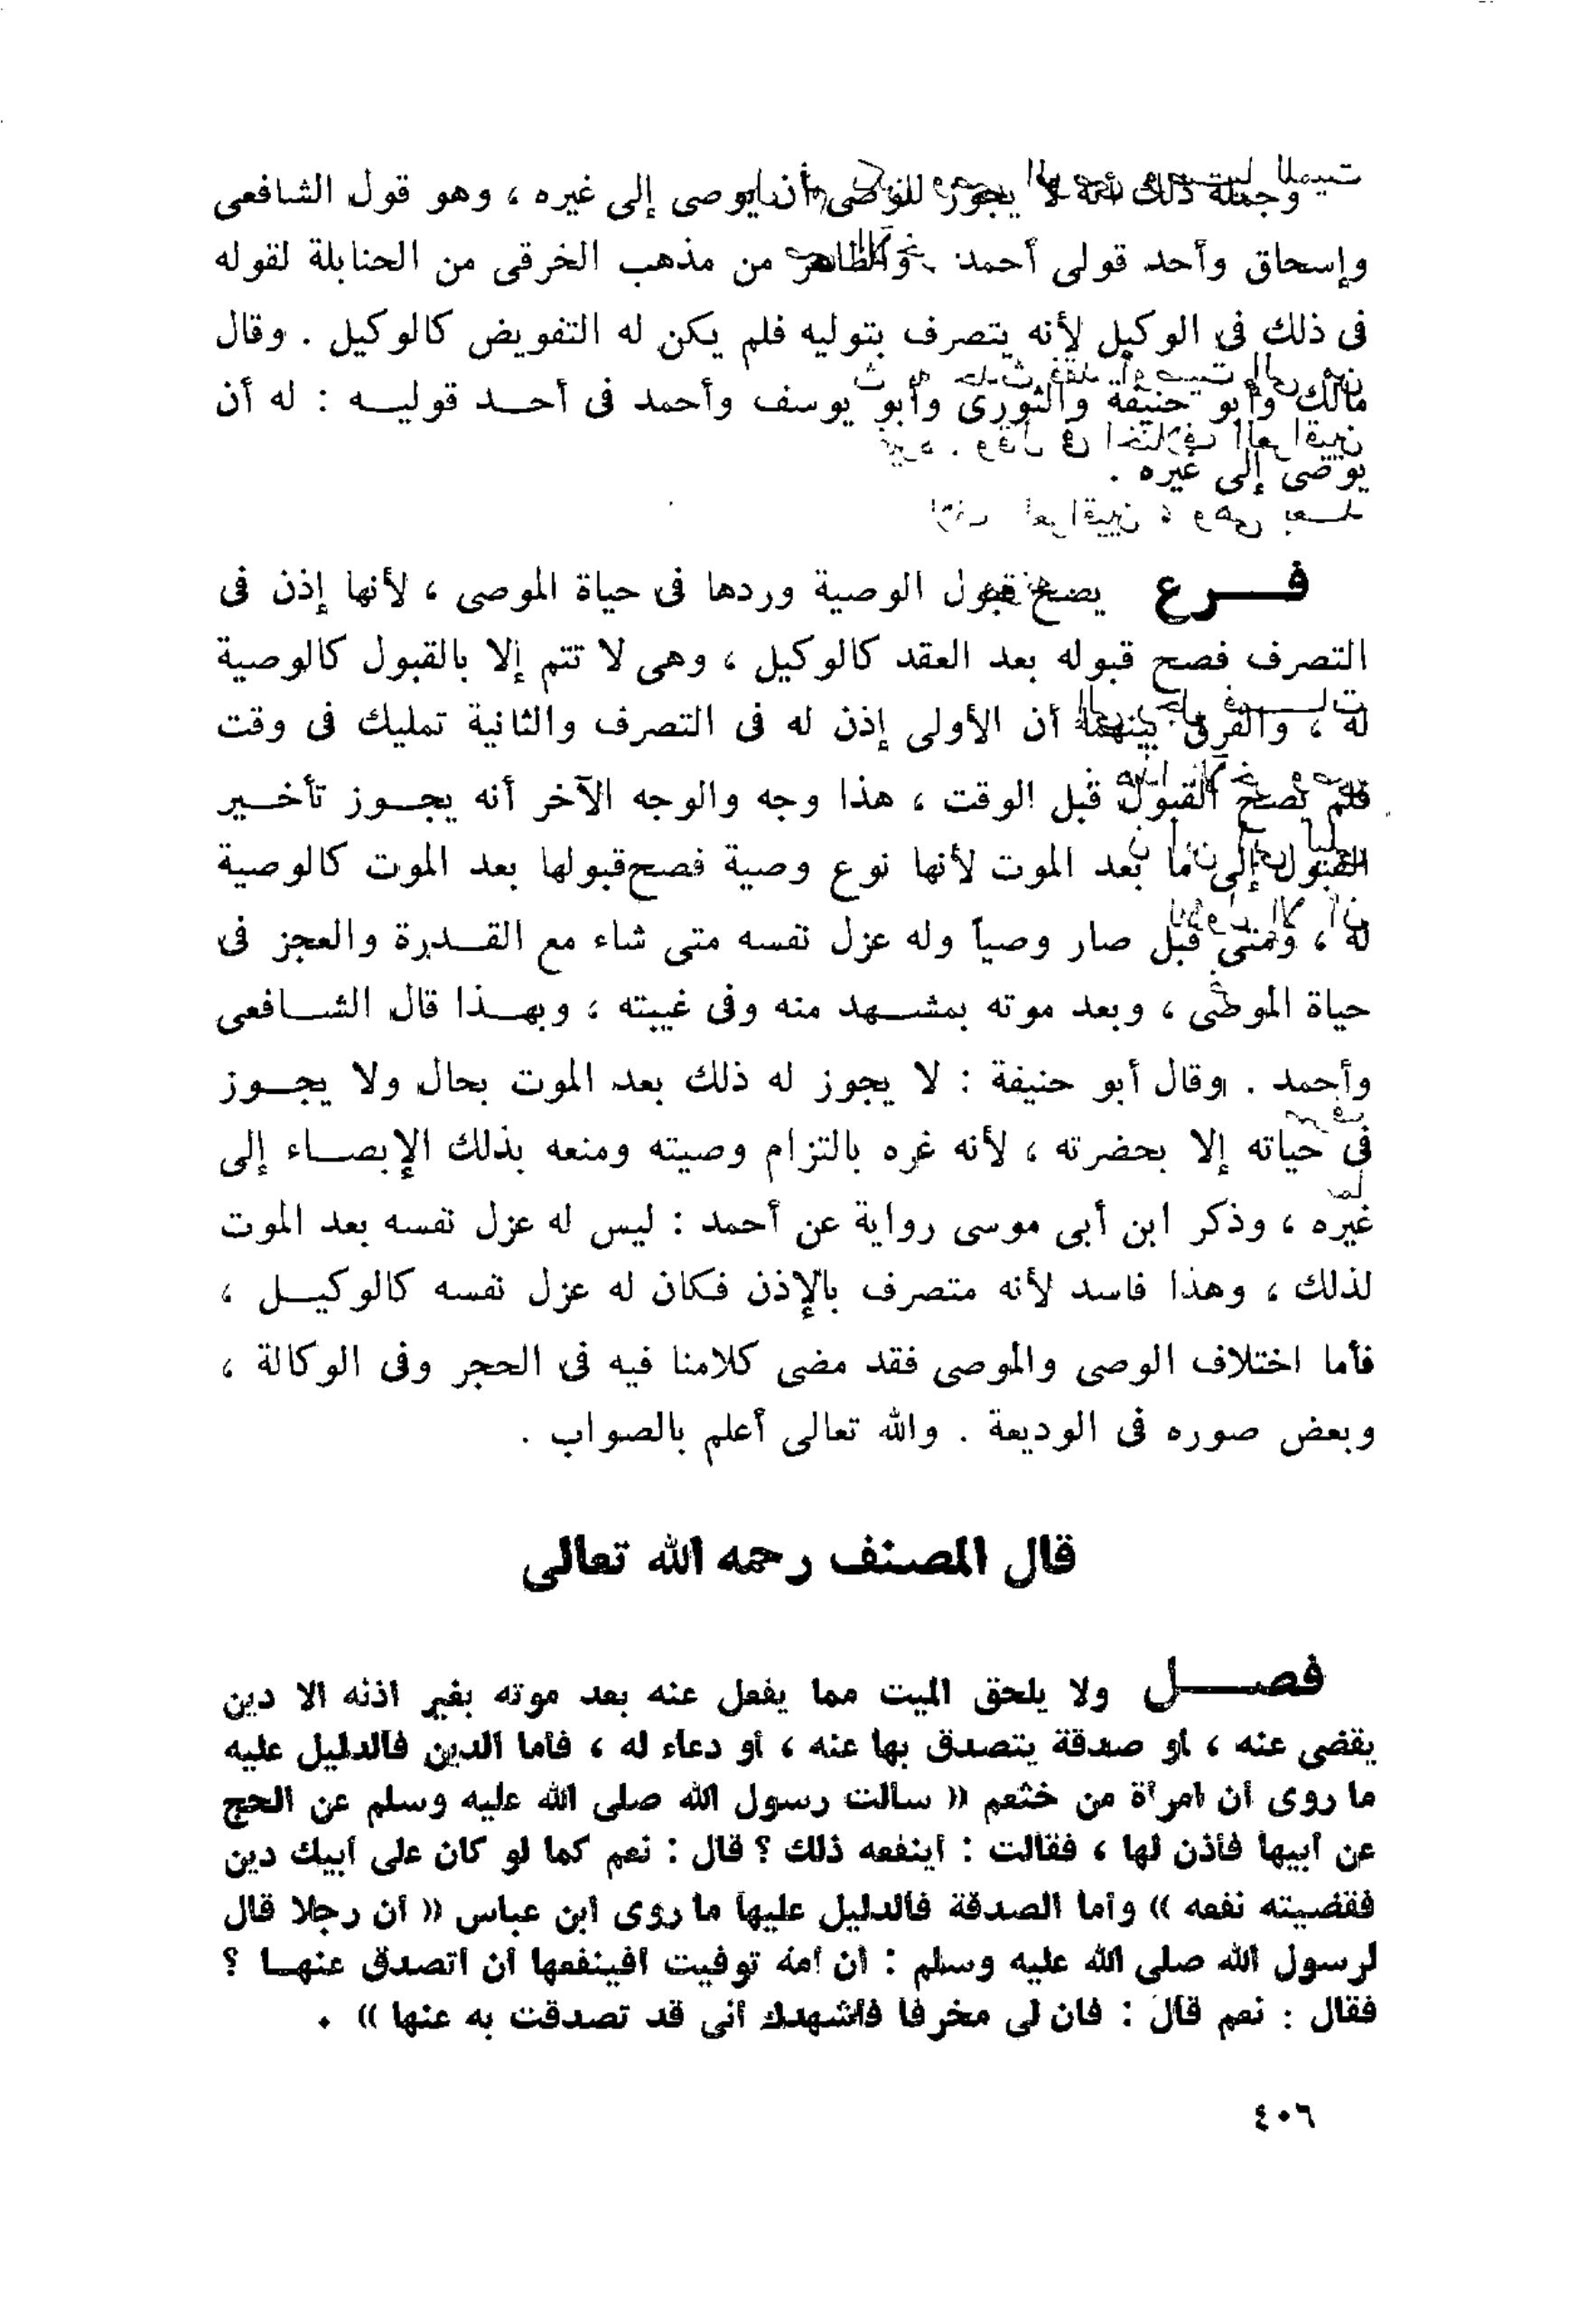 وجملة ذلك أنه لا يجوز للوصى أن يوصى إلى غيره ، وهو قول الشافعى
وإسحاق وأحد قولى أحمد . والظاهر من مذهب الخرقى من الحنابلة لقوله
فى ذلك فى الوكيل لأنه يتصرف بتوليه فلم يكن له التفويض كالوكيل . وقال
مالك وأبو حنيفة والثورى وأبو يوسف وأحمد فى أحـد قوليـه : له أن
يوصى إلى غيره .
فـــرع يصح قبول الوصية وردها فى حياة الموصى ، لأنها إذن فى
التصرف فصح قبوله بعد العقد كالوكيل ، وهى لا تتم إلا بالقبول كالوصية
له ، والفرق بينهما أن الأولى إذن له فى التصرف والثانية تمليك فى وقت
فلم يصح القبول قبل الوقت ، هذا وجه والوجه الآخر أنه يجـوز تأخـير
القبول إلى ما بعد الموت لأنها نوع وصية فصح قبولها بعد الموت كالوصية
له ، ومتى قبل صار وصياً وله عزل نفسه متى شاء مع القـدرة والعجز فى
حياة الموصى ، وبعد موته بمشـهد منه وفى غيبته ، وبهـذا قال الشـافعى
وأحمد . وقال أبو حنيفة : لا يجوز له ذلك بعد الموت بحال ولا يجـوز
فى حياته إلا بحضرته ، لأنه غره بالتزام وصيته ومنعه بذلك الإيصـاء إلى
غيره ، وذكر ابن أبى موسى رواية عن أحمد : ليس له عزل نفسه بعد الموت
لذلك ، وهذا فاسد لأنه متصرف بالإذن فكان له عزل نفسه كالوكيـل ،
فأما اختلاف الوصى والموصى فقد مضى كلامنا فيه فى الحجر وفى الوكالة ،
وبعض صوره فى الوديعة . والله تعالى أعلم بالصواب .
قال المصنف رحمه الله تعالى
فصـــل ولا يلحق الميت مما يفعل عنه بعد موته بغير اذنه الا دين
يقضى عنه ، او صدقة يتصدق بها عنه ، أو دعاء له ، فأما الدين فالدليل عليه
ما روى أن امرأة من خثعم (( سالت رسول الله صلى الله عليه وسلم عن الحج
عن أبيها فأذن لها ، فقالت : أينفعه ذلك ؟ قال : نعم كما لو كان على أبيك دين
فقضيته نفعه )) وأما الصدقة فالدليل عليها ما روى ابن عباس (( أن رجلا قال
لرسول الله صلى الله عليه وسلم : أن أمه توفيت افينفعها أن اتصدق عنهـا ؟
فقال : نعم قال : فان لى مخرفا فأشهدك أنى قد تصدقت به عنها )) .
٤٠٦